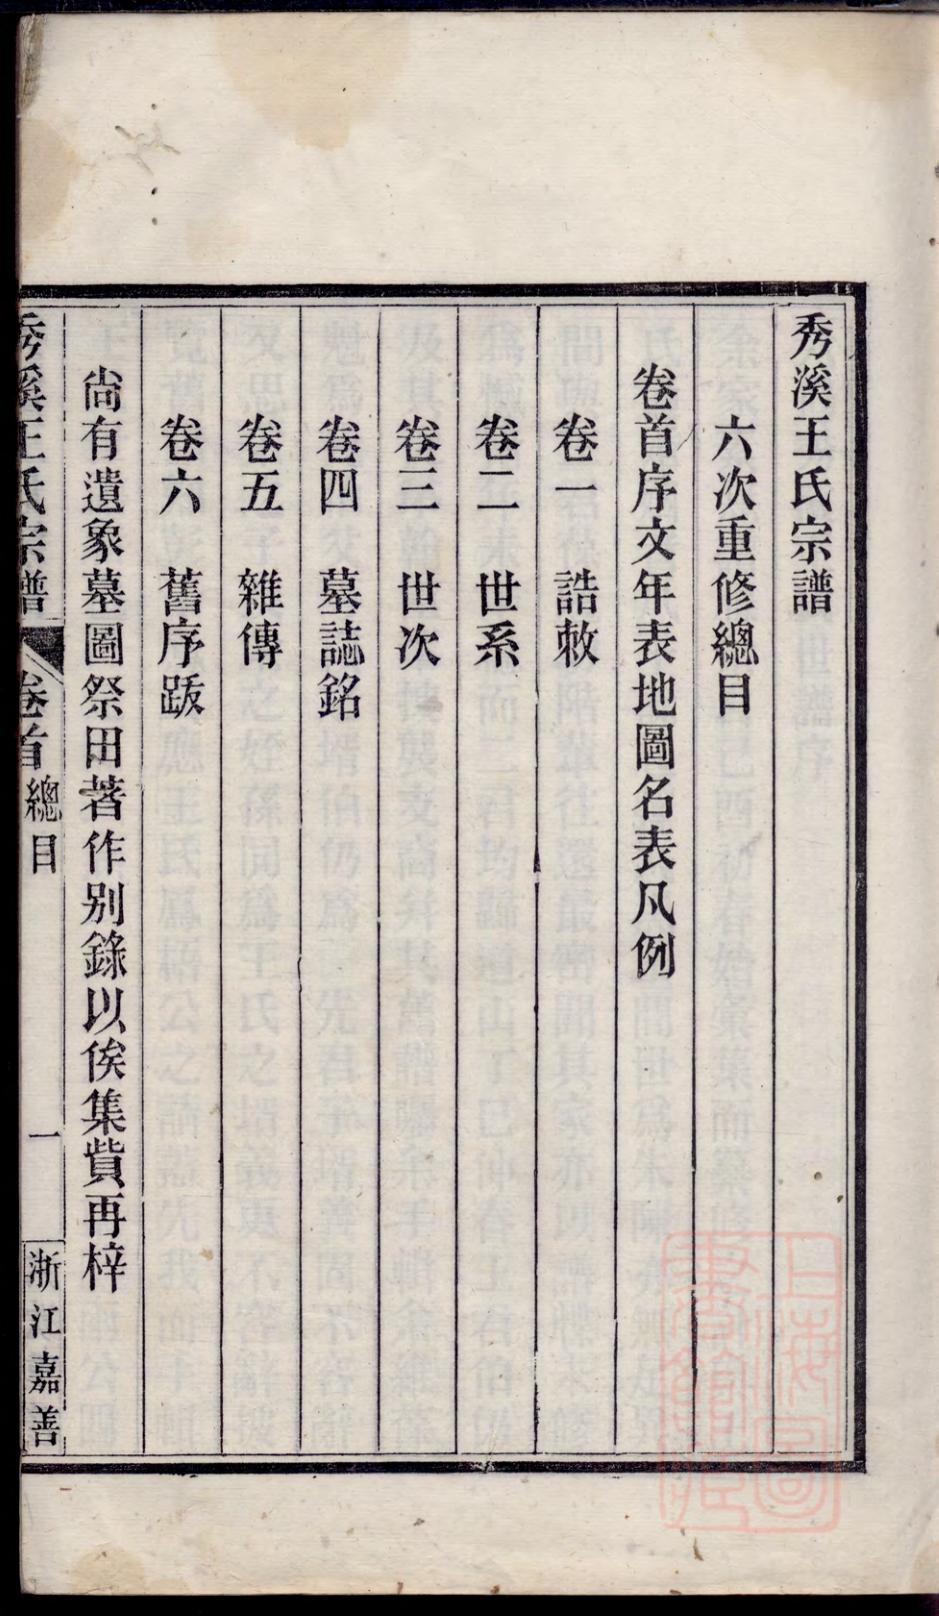 秀溪王氏宗譜
六次重修總目
卷首序文年表地圖名表凡例
卷一 誥敕
卷二 世系
卷三 世次
卷四 墓誌銘
卷五 雜傳
卷六 舊序跋
尙有遺象墓圖祭田著作别錄以俟集貲再梓
秀溪王氏宗譜 卷首 總目 一 浙江嘉善
上海圖書館藏